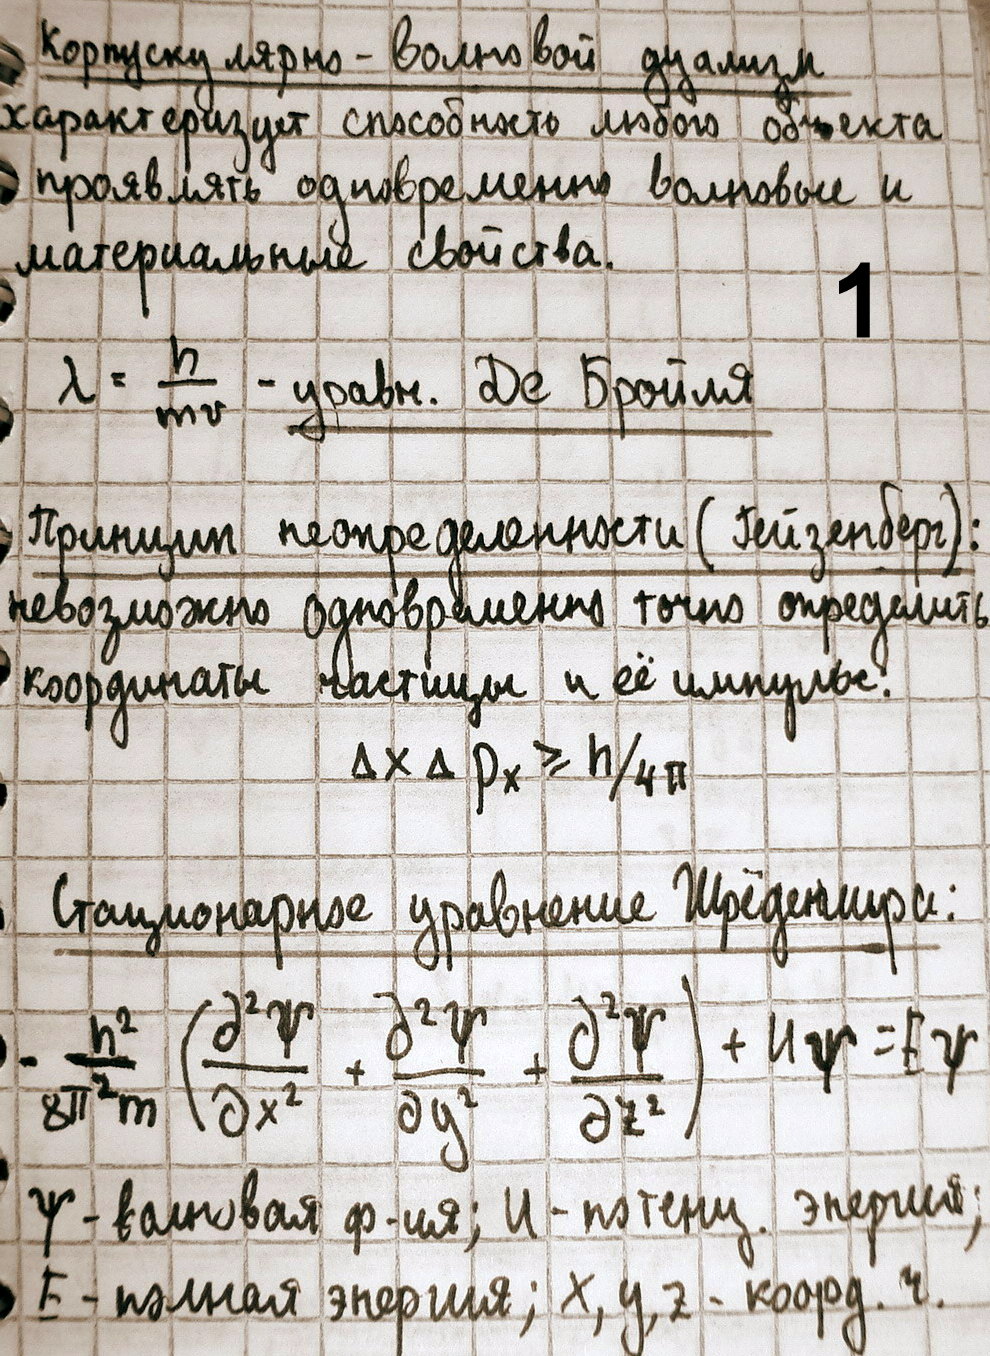 Корпускулярно-волновой дуализм
характеризует способность любого объекта
проявлять одновременно волновые и
материальные свойства.
1
λ = h/mv - уравн. Де Бройля
Принцип неопределенности (Гейзенберг):
невозможно одновременно точно определить
координаты частицы и её импульс.
Δx Δ pₓ ≥ h/4π
Стационарное уравнение Шрёденгира:
- h²/8π²m (∂²ψ/∂x² + ∂²ψ/∂y² + ∂²ψ/∂z²) + Uψ = Eψ
ψ - волновая ф-ия; U - потенц. энергия;
E - полная энергия; x, y, z - коорд. ч.